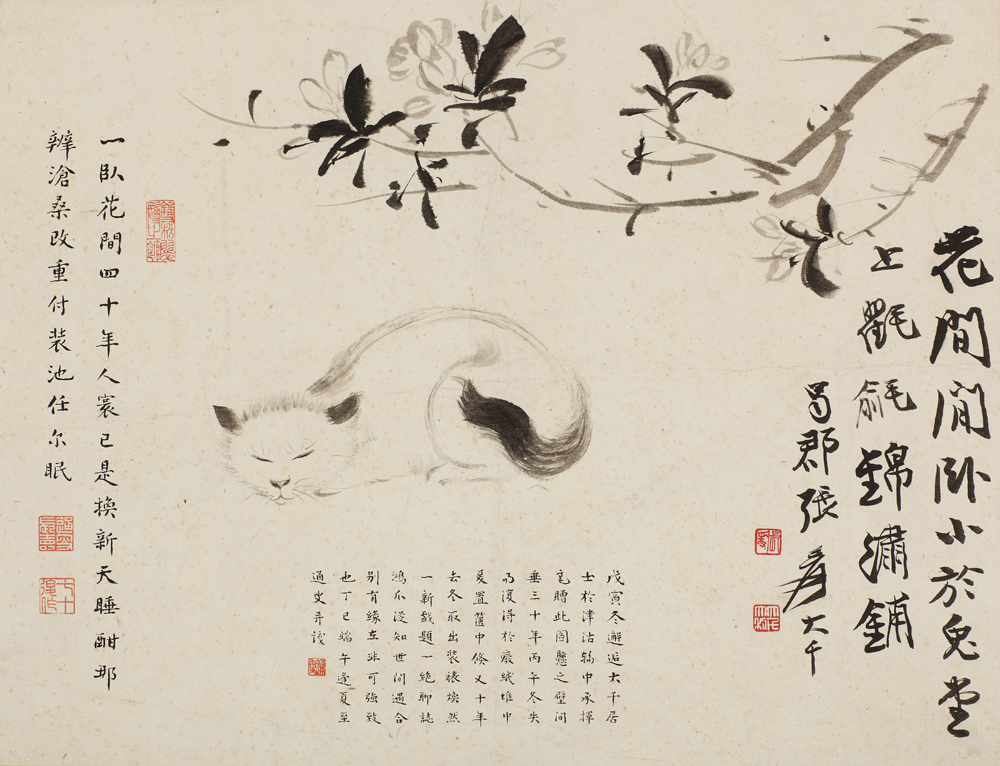 花間閒卧小於兔堂
上氍毹錦繡鋪
蜀郡張爰大千
戊寅冬邂逅大千居
士於津沽輪中承揮
毫贈此圖懸之壁間
垂三十年丙午冬失
乃復得於廢紙堆中
爰置篋中倏又十年
去冬取出裝裱煥然
一新戲題一絕聊誌
鴻爪從知世間遇合
別有緣在非可強致
也丁巳端午逢夏至
通叟并識
一臥花間四十年人寰已是換新天睡酣那
辨滄桑改重付裝池任尔眠
七十後作